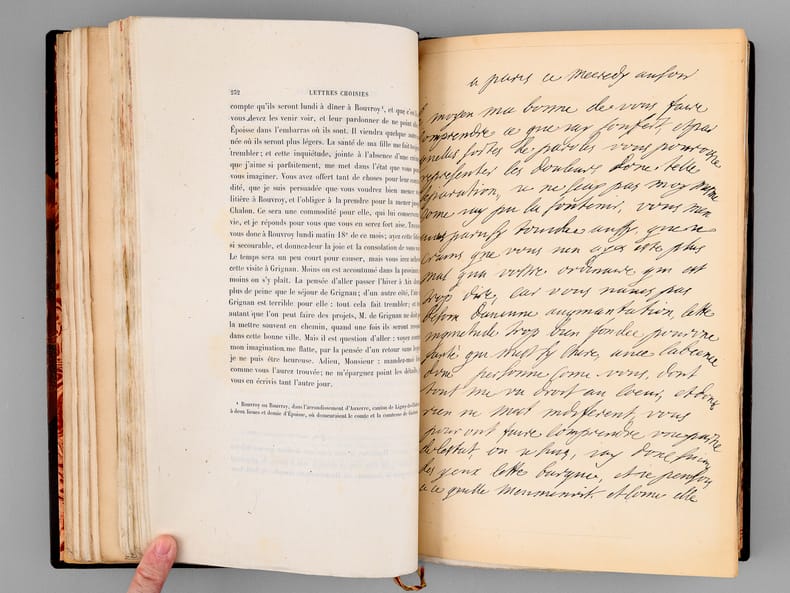 252 LETTRES CHOISIES
compte qu'ils seront lundi à dîner à Rouvroy¹, et que c'est
vous devez les venir voir, et leur pardonner de ne point
Époisse dans l'embarras où ils sont. Il viendra quelque autre
née où ils seront plus légers. La santé de ma fille me fait
trembler; et cette inquiétude, jointe à l'absence d'une
que j'aime si parfaitement, me met dans l'état que vous
vous imaginer. Vous avez offert tant de choses pour leur
dité, que je suis persuadée que vous voudrez bien mener
litière à Rouvroy, et l'obliger à la prendre pour la mener
Chalon. Ce sera une commodité pour elle, qui lui conservera
vie, et je réponds pour vous que vous en serez fort aise.
vous donc à Rouvroy lundi matin 18ᵉ de ce mois; ayez cette
si secourable, et donnez-leur la joie et la consolation de vous
Le temps sera un peu court pour causer, mais vous irez
cette visite à Grignan. Moins on est accoutumé dans la province,
moins on s'y plaît. La pensée d'aller passer l'hiver à Aix
plus de peine que le séjour de Grignan; d'un autre côté,
Grignan est terrible pour elle : tout cela fait trembler; et
autant que l'on peut faire des projets, M. de Grignan me
la mettre souvent en chemin, quand une fois ils seront
dans cette bonne ville. Mais il est question d'aller : voyez
mon imagination me flatte, par la pensée d'un retour sans
je ne puis être heureuse. Adieu, Monsieur : mandez-moi
comme vous l'aurez trouvée; ne m'épargnez point les détails,
vous en écrivis tant l'autre jour.
¹ Rouvroy ou Rouvray, dans l'arrondissement d'Auxerre, canton de
à deux lieues et demie d'Époisse, où demeuraient le comte et la comtesse de
a paris ce mecredy au soir
moyen ma bonne de vous faire
comprendre ce que jay souffert, et par
quelles sortes de paroles vous pourrois je
representer les douleurs dune telle
separation, je ne scay pas moy mesme
come jay pu la soutenir, vous men
aves paru sy touchee aussy, que je
crains que vous nen ayes esté plus
mal qua vostre ordinaire qui est
trop dire, car vous naves pas
besoin daucune augmantation, cette
inquietude trop bien fondee pour une
santé qui mest sy chere, avec labcence
dune personne come vous, dont
tout me va droit au coeur, et dont
rien ne mest indifferent, vous
pouront faire comprendre une partie
de lestat ou je suis, jay donc suivy
des yeux cette barque, et je pensois
a ce quelle memmenoit. et come elle